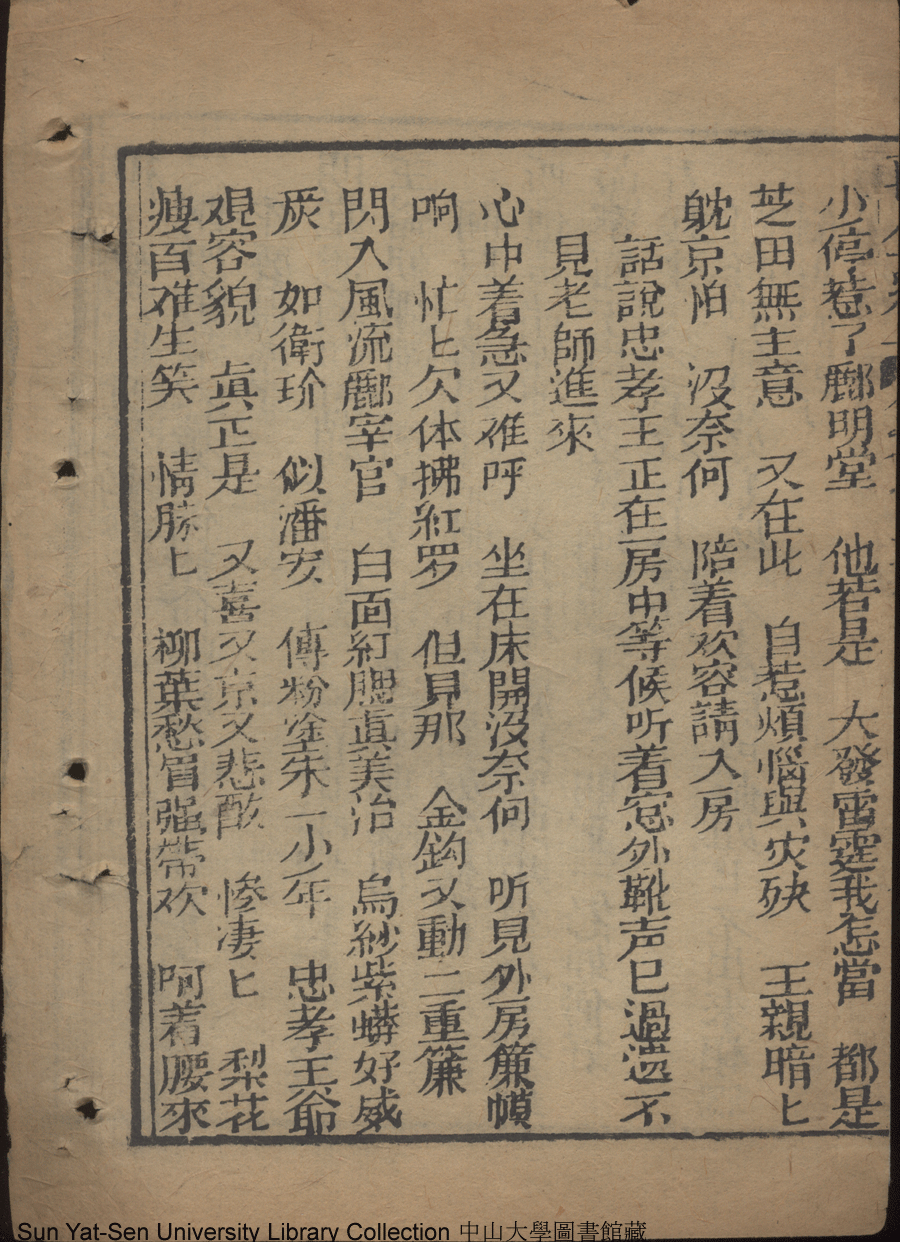 少停惹了酈明堂 他若是 大發雷霆我怎當 都是
芝田無主意 又在此 自惹煩惱與灾殃 王親暗匕
躭京怕 没奈何 陪着欢容請入房
話說忠孝王正在房中等候听着窓外靴声已過還不
見老師進來
心中着急又难呼 坐在床開没奈何 听見外房簾幀
响 忙匕欠体拂紅罗 但見那 金鈎又動二重簾
閃入風流酈宰官 白面紅腮眞美治 烏紗紫蟒好威
炭 如衛玠 似潘安 傳粉塗朱一少年 忠孝王爺
覌容貌 眞正是 又喜又京又悲酸 惨凄匕 梨花
瘦百难生笑 情脉匕 柳葉愁眉强帶欢 阿着腰來
Sun Yat-Sen University Library Collection 中山大學圖書館藏